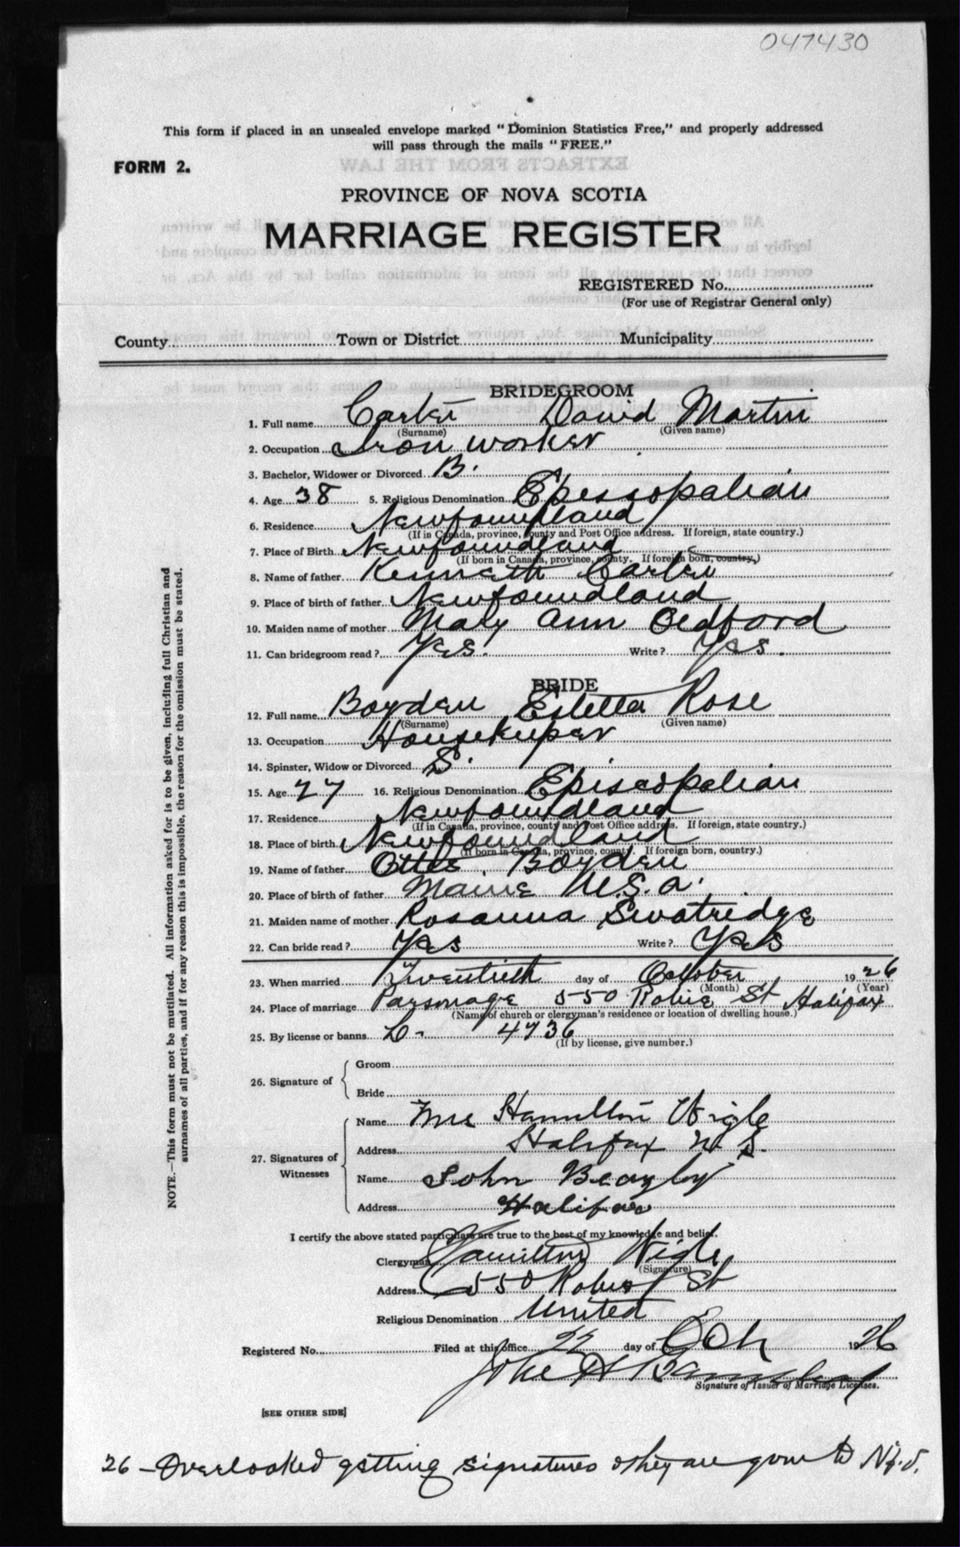 047430
This form if placed in an unsealed envelope marked "Dominion Statistics Free," and properly addressed
will pass through the mails "FREE."
FORM 2.
PROVINCE OF NOVA SCOTIA
MARRIAGE REGISTER
REGISTERED No.
(For use of Registrar General only)
County Town or District Municipality
BRIDEGROOM
1. Full name Carter David Martin
(Surname) (Given name)
2. Occupation Iron worker
3. Bachelor, Widower or Divorced B.
4. Age 38 5. Religious Denomination Episcopalian
6. Residence Newfoundland
(If in Canada, province, county and Post Office address. If foreign, state country.)
7. Place of Birth Newfoundland
(If born in Canada, province, county. If foreign born, country.)
8. Name of father Kenneth Carter
9. Place of birth of father Newfoundland
10. Maiden name of mother Mary Ann Oldford
11. Can bridegroom read? Yes. Write? Yes.
BRIDE
12. Full name Boyden Estella Rose
(Surname) (Given name)
13. Occupation Housekeeper
14. Spinster, Widow or Divorced S.
15. Age 27 16. Religious Denomination Episcopalian
17. Residence Newfoundland
(If in Canada, province, county and Post Office address. If foreign, state country.)
18. Place of birth Newfoundland
(If born in Canada, province, county. If foreign born, country.)
19. Name of father Boyden
20. Place of birth of father Maine U.S.A.
21. Maiden name of mother Rosanna Swatredge
22. Can bride read? Yes Write? Yes
23. When married Twentieth day of October 1926
(Month) (Year)
24. Place of marriage Parsonage 550 Robie St Halifax
(Name of church or clergyman's residence or location of dwelling house.)
25. By license or banns L- 4736
(If by license, give number.)
26. Signature of
Groom
Bride
27. Signatures of Witnesses
Name Mrs Hamilton Wigle
Address Halifax N.S.
Name John Beazley
Address Halifax
I certify the above stated particulars are true to the best of my knowledge and belief.
Clergyman Hamilton Wigle
(Signature)
Address 550 Robie St
Religious Denomination United
Registered No. Filed at this office 22 day of Oct 1926
John H
Signature of Issuer of Marriage Licenses.
[SEE OTHER SIDE]
26 - Overlooked getting signatures & they are gone to Nf.d.
NOTE.—This form must not be mutilated. All information asked for is to be given, including full Christian and
surnames of all parties, and if for any reason this is impossible, the reason for the omission must be stated.